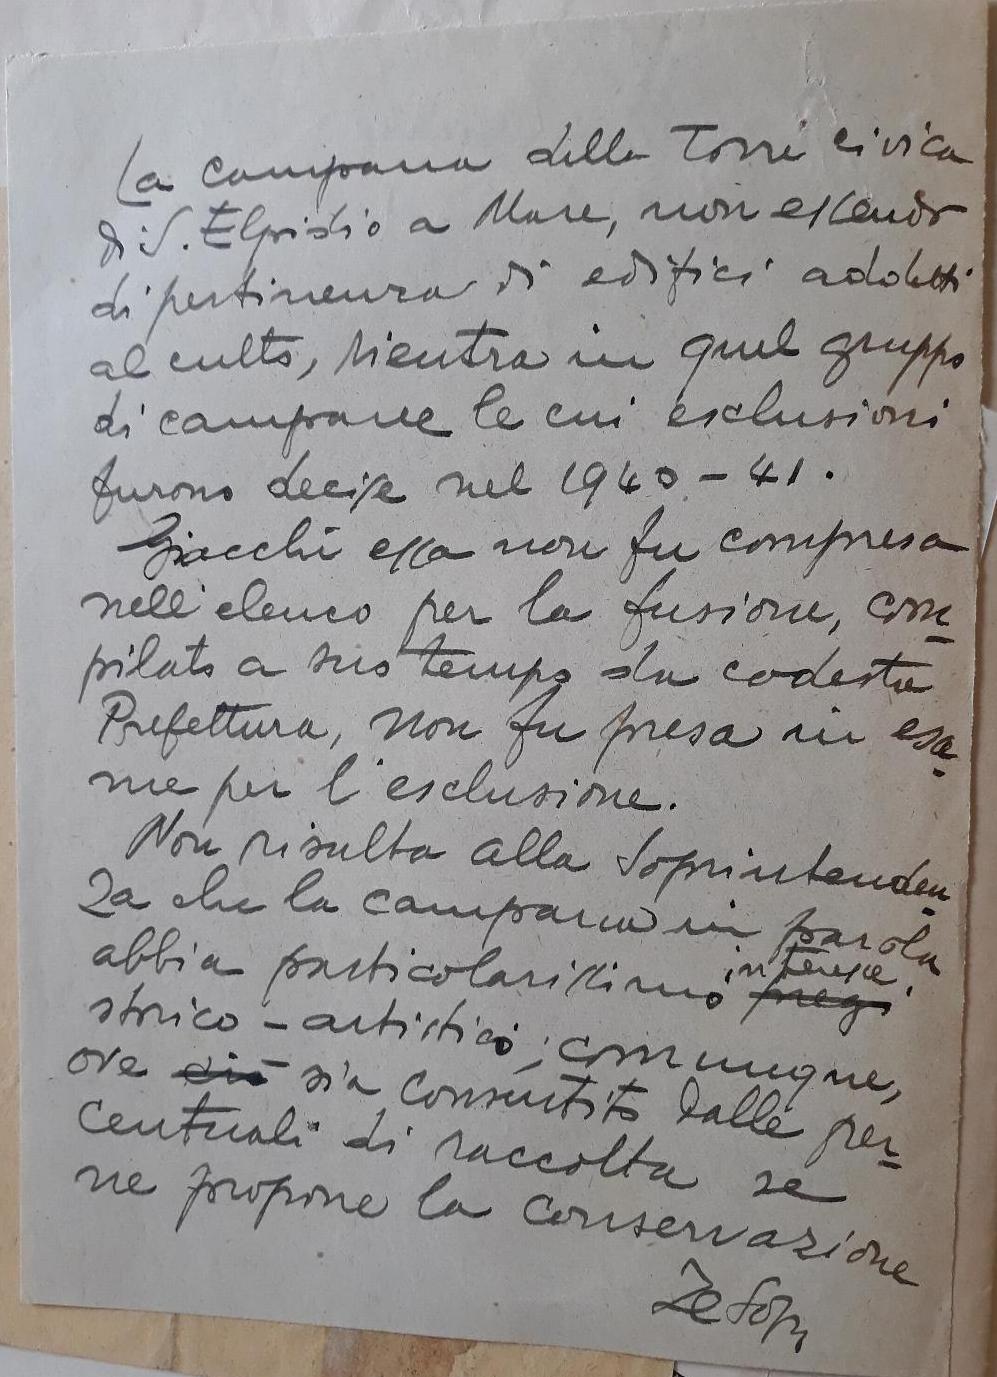 La campana della Torre Civica
di S. Elpidio a Mare, non essendo
di pertinenza di edifici addetti
al culto, rientra in quel gruppo
di campane le cui esclusioni
furono decise nel 1940-41.
Giacchè essa non fu compresa
nell'elenco per la fusione, com-
pilato a suo tempo da codesta
Prefettura, non fu presa in esa-
me per l'esclusione.
Non risulta alla Soprintenden-
za che la campana in parola
abbia particolarissimo interesse
storico-artistico; comunque,
ove ciò sia consentito dalle per-
centuali di raccolta se
ne propone la conservazione